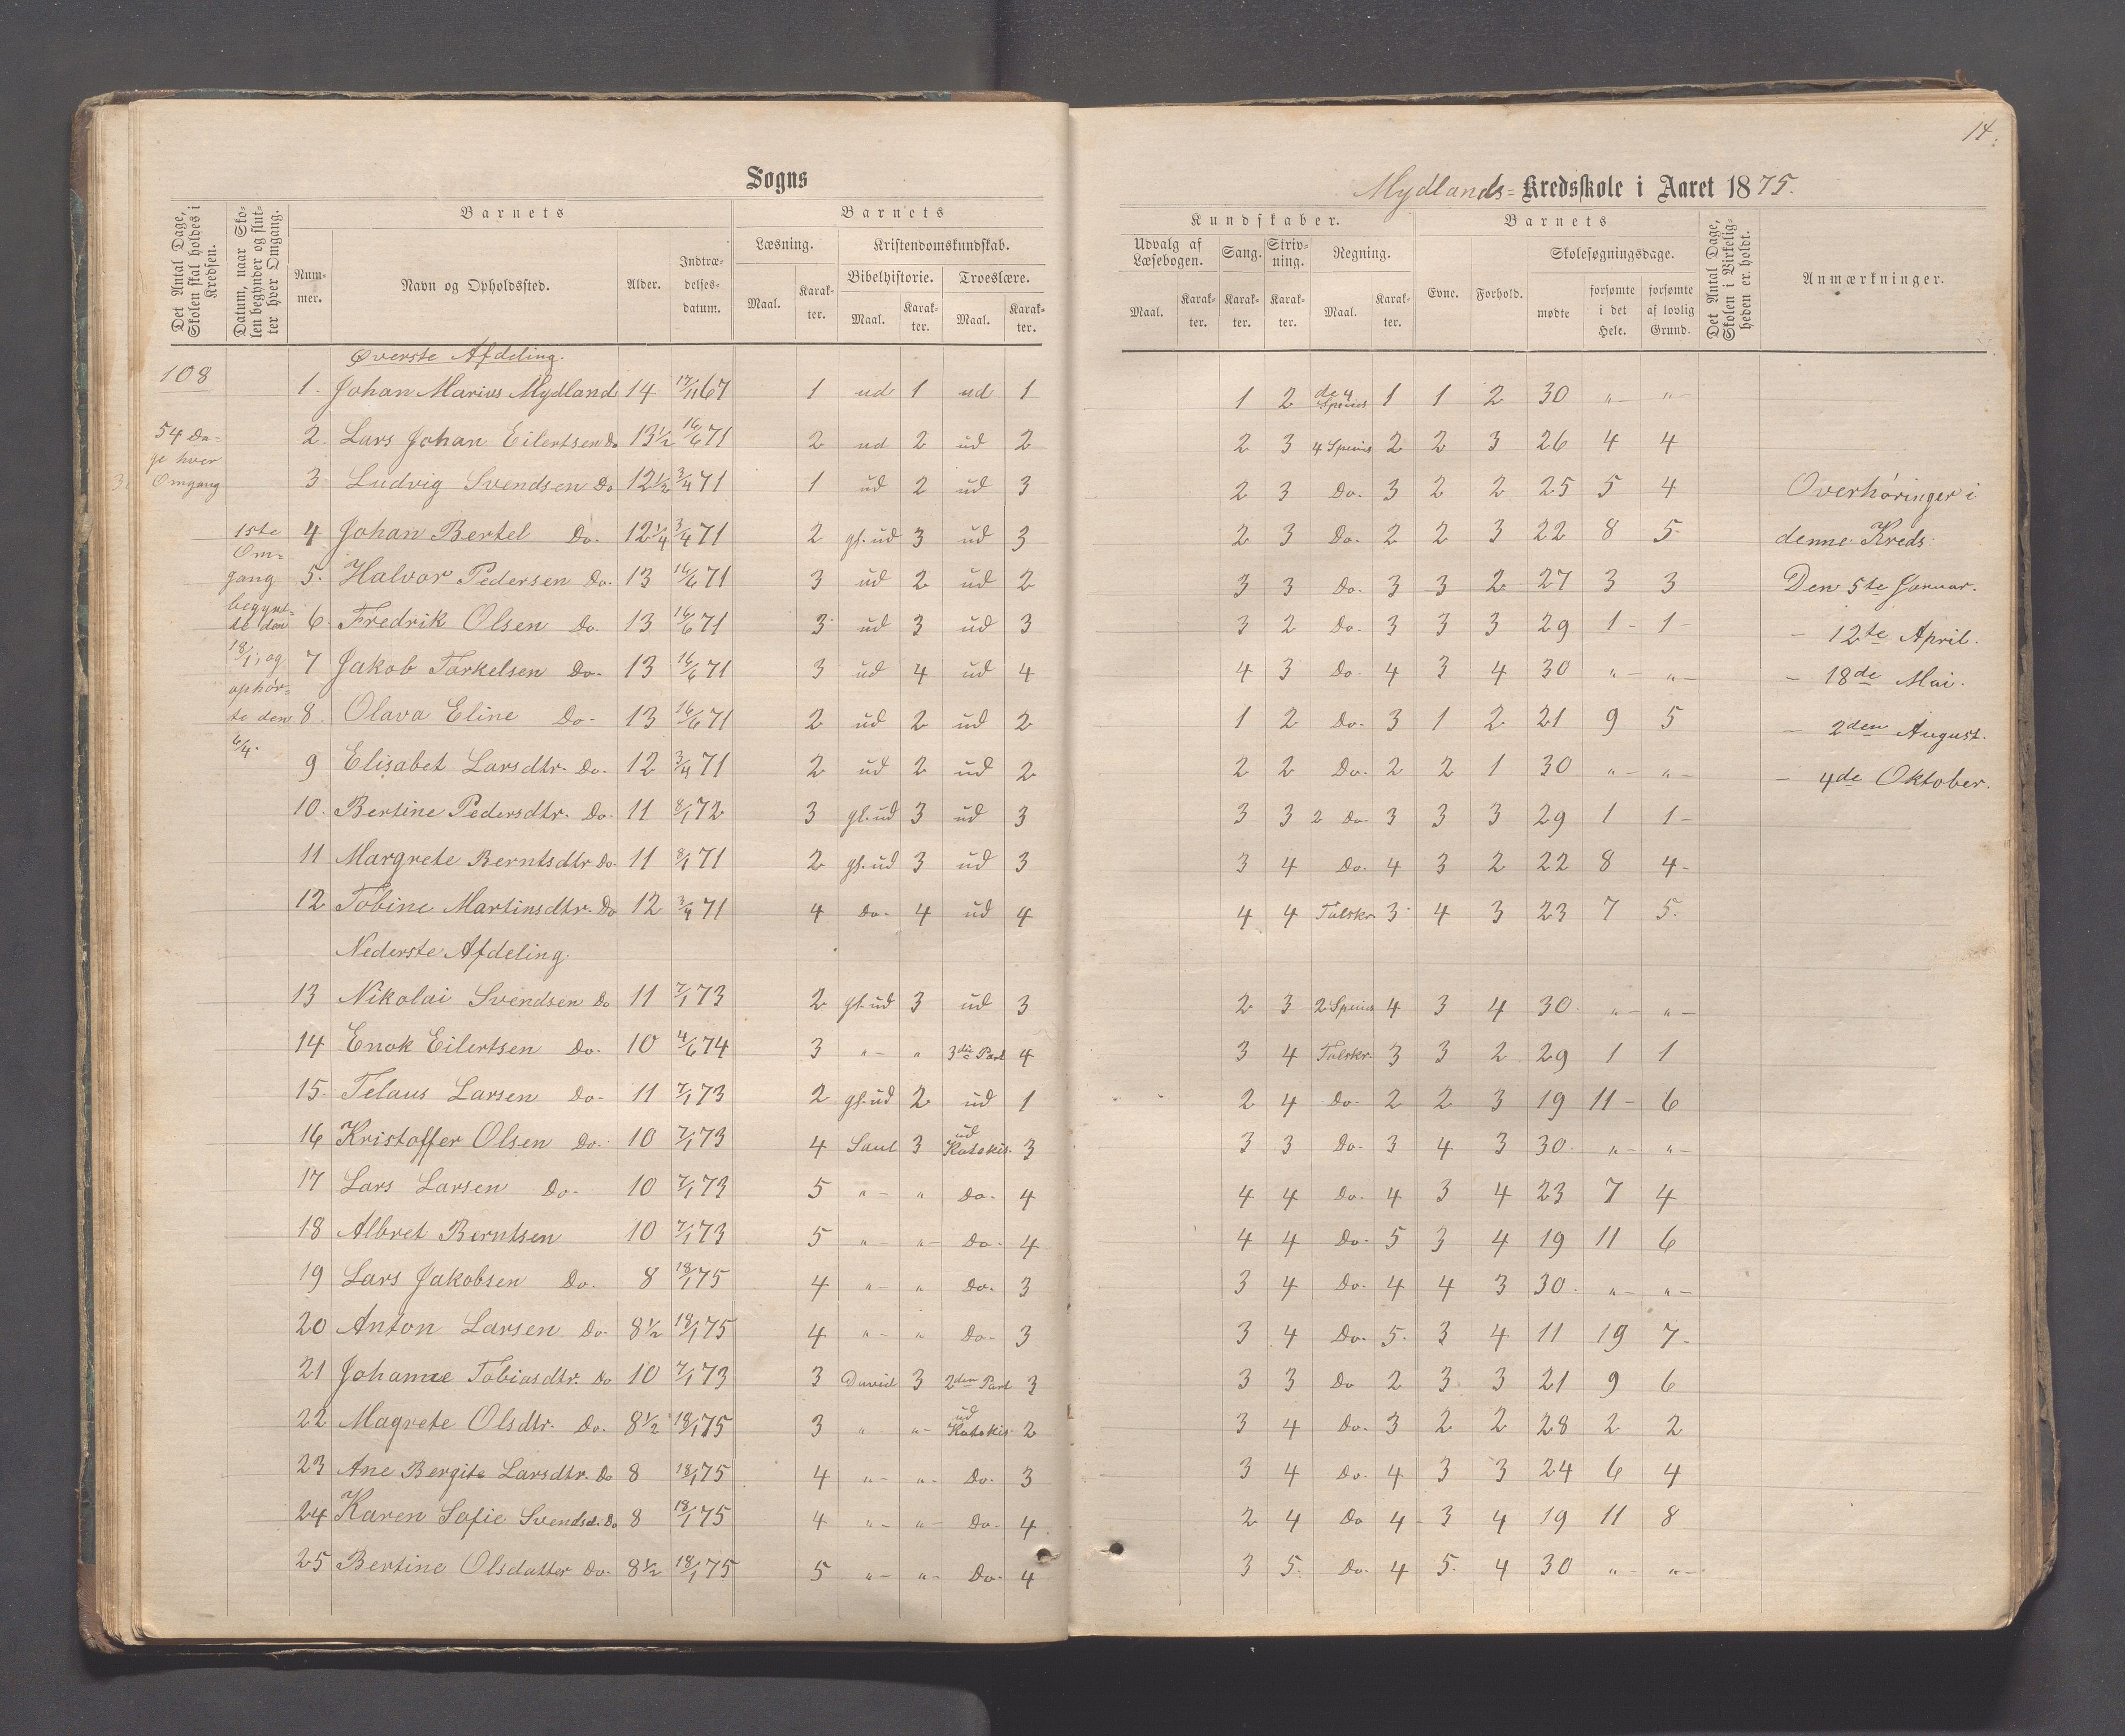 14.
Sogns
Mydlands- Kredsskole i Aaret 1875.
Det Antal Dage, Skolen skal holdes i Kredsen.
Datum, naar Skolen begynder og slutter hver Omgang.
Barnets
Nummer.
Navn og Opholdssted.
Alder.
Indtrædelsesdatum.
Barnets
Læsning.
Maal.
Karakter.
Kristendomskundskab.
Bibelhistorie.
Maal.
Karakter.
Troeslære.
Maal.
Karakter.
Kundskaber.
Udvalg af Læsebogen.
Maal.
Karakter.
Sang.
Karakter.
Skrivning.
Karakter.
Regning.
Maal.
Karakter.
Barnets
Evne.
Forhold.
Skolesøgningsdage.
mødte
forsømte i det Hele.
forsømte af lovlig Grund.
Det Antal Dage, Skolen i Virkeligheden er holdt.
Anmærkninger.
108
54 Da-
ge hver
Omgang
1ste
Om-
gang
begynt-
te den
18/1, og
ophør-
te den
6/4.
Øverste Afdeling.
1. Johan Marius Mydland 14 17/11 67 1 ud 1 ud 1 1 2 de 4 Species 1 1 2 30 „ „
2. Lars Johan Eilertsen Do 13½ 16/6 71 2 ud 2 ud 2 2 3 4 Species 2 2 3 26 4 4
3 Ludvig Svendsen Do 12½ 3/4 71 1 ud 2 ud 3 2 3 Do. 3 2 2 25 5 4 Overhøringer i
4 Johan Bertel Do. 12¼ 3/4 71 2 gl. ud 3 ud 3 2 3 Do. 2 2 3 22 8 5 denne Kreds:
5. Halvor Pedersen Do. 13 16/6 71 3 ud 2 ud 2 3 3 Do. 3 3 2 27 3 3 Den 5te Januar.
6. Fredrik Olsen Do. 13 16/6 71 3 ud 3 ud 3 3 2 Do. 3 3 3 29 1 1 – 12te April.
7 Jakob Torkelsen Do. 13 16/6 71 3 ud 4 ud 4 4 3 Do. 4 3 4 30 „ „ – 18de Mai.
8. Olava Eline Do. 13 16/6 71 2 ud 2 ud 2 1 2 Do. 3 1 2 21 9 5 – 2den August.
9 Elisabet Larsdtr. Do. 12 3/4 71 2 ud 2 ud 2 2 2 Do. 2 2 1 30 „ „ – 4de Oktober.
10. Bertine Pedersdtr. Do. 11 8/1 72 3 gl. ud 3 ud 3 3 3 2 Do. 3 3 3 29 1 1
11 Margrete Berntsdtr Do. 11 8/1 71 2 gl. ud 3 ud 3 3 4 Do. 4 3 2 22 8 4
12 Tobine Martinsdtr. Do 12 3/4 71 4 Do. 4 ud 4 4 4 Talskr. 3 4 3 23 7 5.
Nederste Afdeling.
13 Nikolai Svendsen Do 11 7/1 73 2 gl. ud 3 ud 3 2 3 2 Species 4 3 4 30. „ „
14 Enok Eilertsen Do. 10 4/6 74 3 „ „ 3die Part 4 3 4 Talskr. 3 3 2 29 1 1
15. Telaus Larsen Do. 11 7/1 73 2 gl. ud 2 ud 1 2 4 Do. 2 2 3 19 11 6
16 Kristoffer Olsen Do. 10 7/1 73 4 Saul 3 ud Katekis. 3 3 3 Do. 3 4 3 30. „ „
17 Lars Larsen Do. 10 7/1 73 5 „ „ Do. 4 4 4 Do. 4 3 4 23 7 4
18 Albret Berntsen 10 7/1 73 5 „ „ Do. 4 4 4 Do. 5 3 4 19 11 6
19 Lars Jakobsen Do. 8 18/1 75 4 „ „ Do. 3 3 4 Do. 4 4 3 30. „ „
20 Anton Larsen Do. 8½ 18/1 75 4 „ „ Do. 3 3 4 Do. 5. 3 4 11 19 7
21 Johanne Tobiasdtr. Do 10 7/1 73 3 David 3 2den Part 3 3 3 Do 2 3 3 21 9 6
22 Magrete Olsdtr. Do. 8½ 18/1 75 3 „ „ ud Katekis. 2 3 4 Do. 3 2 2 28 2 2
23 Ane Bergite Larsdtr. Do 8 18/1 75 4 „ „ Do. 3 3 4 Do. 4 3 3 24 6 4
24 Karen Sofie Svendsd. Do 8 18/1 75 4 „ „ Do. 4 2 4 Do 4 3 4 19 11 8
25 Bertine Olsdatter Do. 8½ 18/1 75 5 „ „ Do. 4 3 5. Do. 4 5. 4 30 „ „